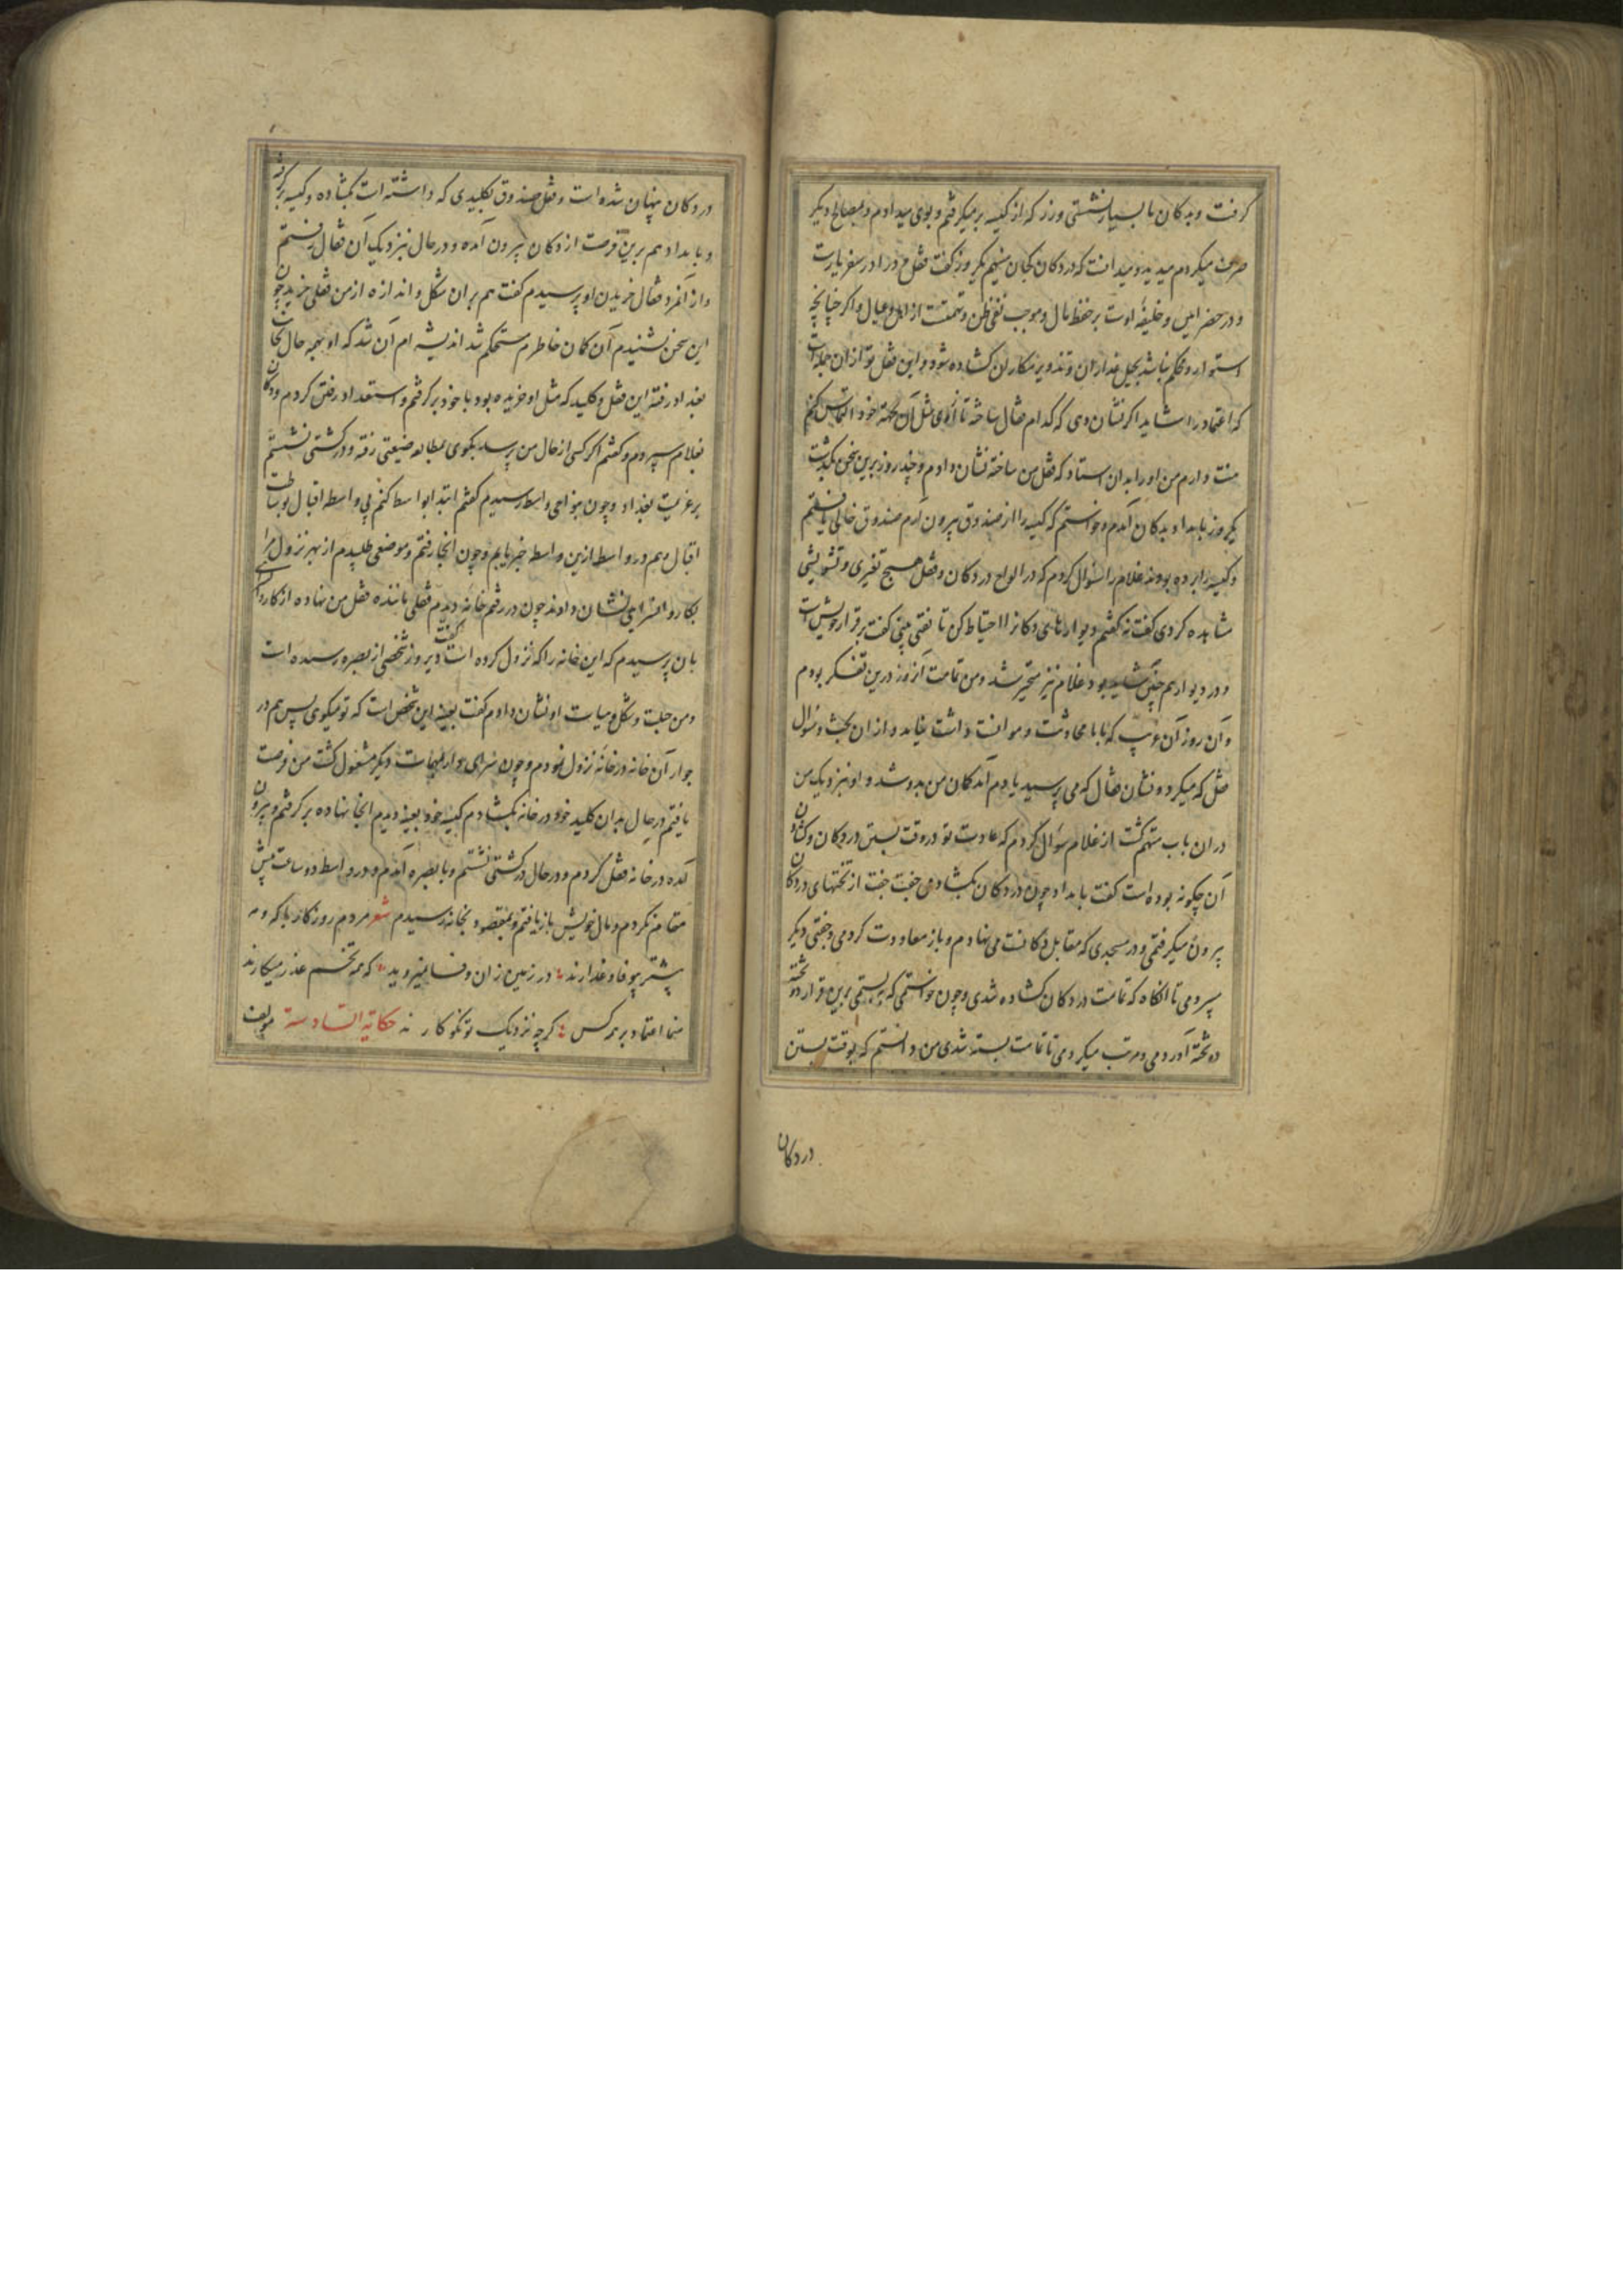 کرفت و بدکان ما بسیار نشستی و زر که از کیسه برمیکرفتم و بوی میدادم و بمصالح دیکر
صرف میکردم میدید و میدانست که در دکان کجا می‌نهم یکروز کفت قفل مرد را در سفر یارست
و در حضر امین و خلیفه اوست بر حفظ مال و موجب نفی ظن و تهمت از اهل و عیال و اکر چنانچه
استوار و محکم نباشد بحیل غداران و تذویر مکاران کشاده شود و این قفل تو از ان جمله است
که اعتماد را شاید اکر نشان دهی که کدام قفال ساخته تا از وی مثل آن بجهة خود التماس کنم
منت دارم من او را بدان استاد که قفل من ساخته نشان دادم و چند روز برین سخن بکذشت
یکروز بامداد بدکان آمدم و خواستم که کیسه را از صندوق بیرون آرم صندوق خالی یافتم
و کیسه را برده بودند غلام را سؤال کردم که در الواح در دکان و قفل هیچ تغیری و تشویشی
مشاهده کردی کفت نه کفتم دیوارهای دکانرا احتیاط کن تا نقبی بینی کفت برقرار خویش است
و در دیوار هم چنین غلام نیز متحیر شد و من تمامت آنروز درین تفکر بودم
و آن روز آن غریب که با ما محادثت و موانست داشت نیامد و از ان بحث و سؤال
قفل که میکرد و نشان قفال که می پرسید یادم آمد کمان من بدو شد و او نیز دیک من
در ان باب متهم کشت از غلام سؤال کردم که عادت تو در وقت بستن در دکان و کشادن
آن چکونه بوده است کفت بامداد چون در دکان بکشادمی جفت جفت از تختهای در دکان
بیرون میکرفتمی و در مسجدی که مقابل دکانست می نهادم و باز معاودت کردمی و جفتی دیکر
ببردمی تا آنکاه که تمامت در دکان کشاده شدی و چون خواستمی که بربستمی برین قرار دو تخته
دو تخته آوردمی و مرتب میکردمی تا تمامت بسته شدی من دانستم که بوقت بستن
در دکان
در دکان پنهان شده است و قفل صندوق بکلیدی که داشته است بکشاده و کیسه برکرفته
و بامداد هم برین فرصت از دکان بیرون آمده و در حال بنزدیک آن قفال رفتم
و از آنمرد و قفال خریدن او پرسیدم کفت هم بران شکل و اندازه از من قفلی خرید چون
این سخن بشنیدم آن کمان خاطرم مستحکم شد اندیشه ام آن شد که او بهمه حال بجانب
بغداد رفته این قفل و کلید که مثل او خریده بود با خود برکرفتم و استعداد رفتن کردم و دکان
بغلام سپردم و کفتم اکر کسی از حال من پرسد بکوی بمطالعه ضیعتی رفته و در کشتی نشستم
بر عزیمت بغداد و چون بنواحی واسط رسیدم کفتم ابتدا بواسط کنم بی واسطه اقبال بوساطت
اقبال هم در واسط ازین واسطه خبر یابم و چون آنجا رفتم و موضعی طلبیدم از بهر نزول مرا
بکاروانسرایی نشان دادند چون در رفتم خانه دیدم قفلی مانند قفل من نهاده از کاروانسرای
بان پرسیدم که این خانه را که نزول کرده است کفت دیروز شخصی از بصره رسیده است
و من حلیت و شکل و هیات او نشان دادم کفت بعینه این شخص است که تو میکوی پس هم در
جوار آن خانه در خانه نزول نمودم و چون سرای دار بمهمات دیکر مشغول کشت من فرصت
یافتم در حال بدان کلید خود در خانه بکشادم کیسه خود بعینه دیدم انجا نهاده برکرفتم و بیرون
آمده در خانه قفل کردم و در حال در کشتی نشستم و با بصره آمدم و در واسط دو ساعت بیش
مقام نکردم و مال خویش بازیافتم و بمقصود بخانه رسیدم شعر مردم روزکار با که و مه
بیشتر بیوفا و غدارند در زمین زان وفا نمیروید که همه تخم غدر میکارند
منما اعتماد بر هر کس کرچه نزدیک تو نکوکارند حکایة السادسة مولف